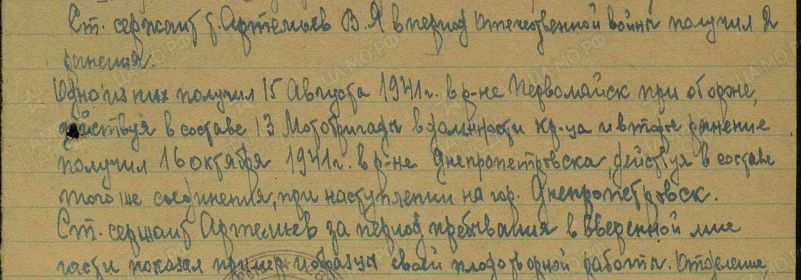 Ст. сержант т. Артемьев В.Я в период Отечественной войны получил 2
ранения.
Одно из них получил 15 Августа 1941г. в р-не Первомайск при обороне,
действуя в составе 13 Мотобригады в должности кр-ца и второе ранение
получил 16 октября 1941г. в р-не Днепропетровска, действуя в составе
того же соединения, при наступлении на гор. Днепропетровск.
Ст. сержант Артемьев за период пребывания в вверенной мне
части показал пример и образцы своей плодотворной работы. Отделение